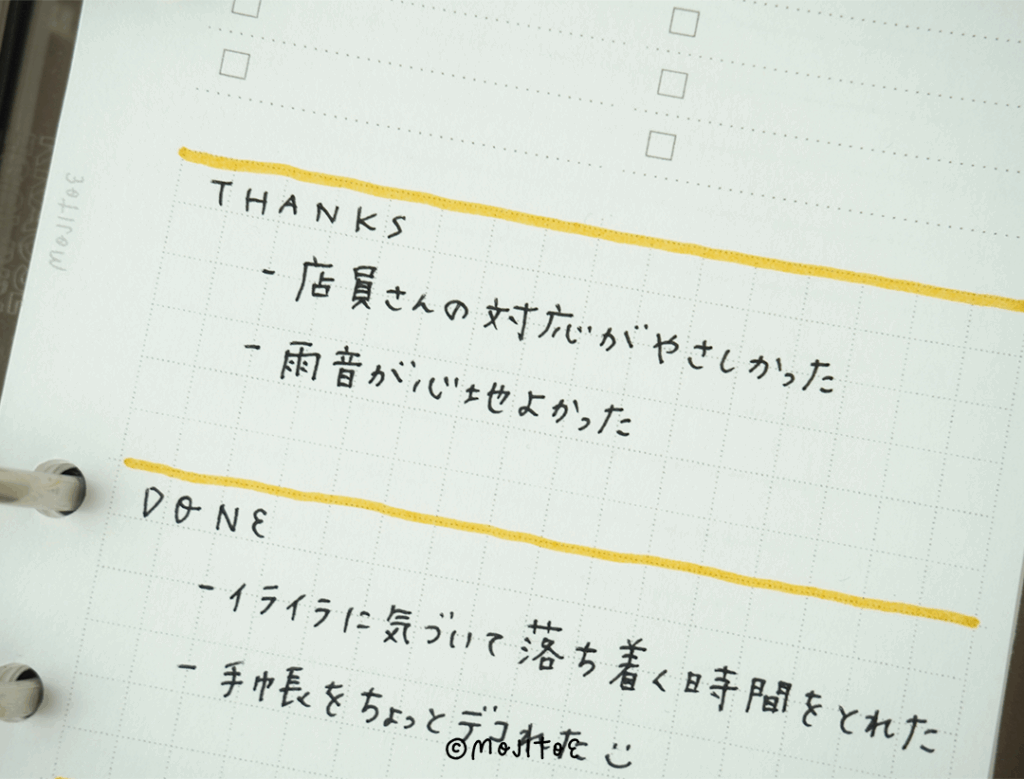 THANKS
- 店員さんの対応がやさしかった
- 雨音が心地よかった
DONE
- イライラに気づいて落ち着く時間をとれた
- 手帳をちょっとデコれた
©MOJITOE